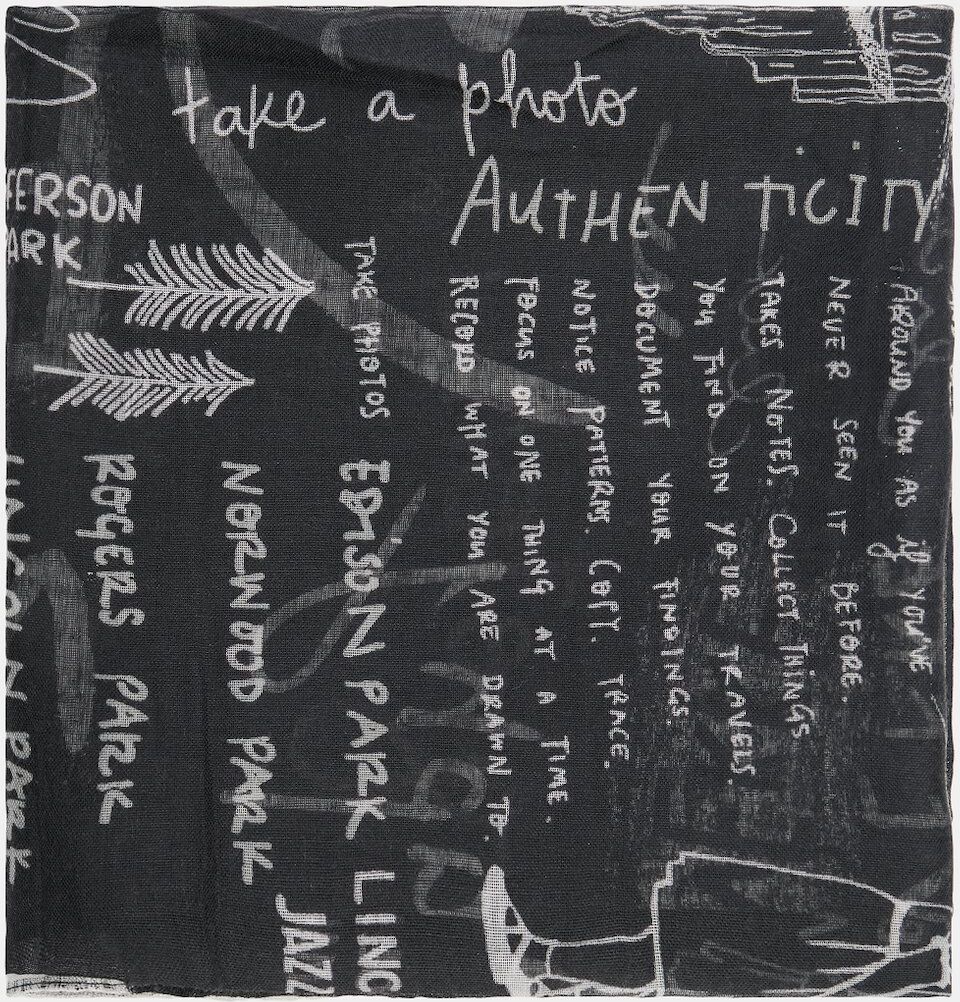 take a photo
AUTHENTICITY
FERSON
ARK
AROUND YOU AS if YOU'VE
NEVER SEEN IT BEFORE.
TAKES NOTES. COLLECT THINGS
YOU FIND ON YOUR TRAVELS.
DOCUMENT YOUR FINDINGS.
NOTICE PATTERNS. COPY. TRACE.
FOCUS ON ONE THING AT A TIME.
RECORD WHAT YOU ARE DRAWN TO.
TAKE PHOTOS
EDISON PARK LINC
JAZZ
NORWOOD PARK
ROGERS PARK
LINCOLN PARK